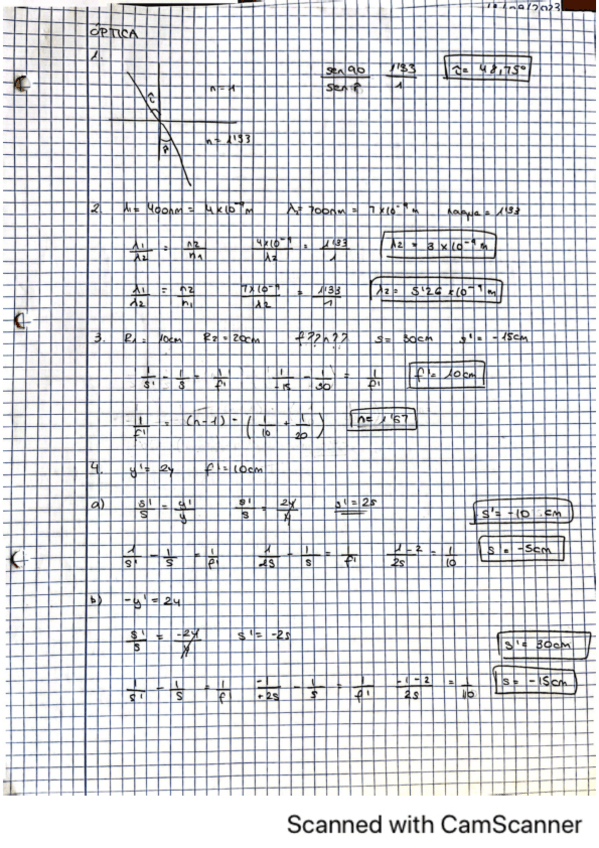 18/09/2023
ÓPTICA
1.
n=1
n=1'33
î
r̂
sen 90 / sen r̂ 1'33 / 1 î= 48,75º
2. λ1= 400nm = 4x10⁻⁷ m λ2= 700nm = 7x10⁻⁷ m nagua = 1'33
λ1/λ2 = n2/n1 4x10⁻⁷/λ2 = 1'33/1 λ2 = 3x10⁻⁷ m
λ1/λ2 = n2/n1 7x10⁻⁷/λ2 = 1'33/1 λ2= 5'26x10⁻⁷ m
3. R1= 10cm R2= 20cm f??n?? s= 30cm s'= -15cm
1/s' - 1/s = 1/f' 1/-15 - 1/30 = 1/f' f'= 10cm
1/f' = (n-1) - (1/10 + 1/20) n= 1'67
4. y'= 2y f'= 10cm
a) s'/s = y'/y s'/s = 2y/y s'= 2s s'= -10 cm
1/s' - 1/s = 1/f' 1/2s - 1/s = 1/f' 1-2/2s = 1/10 s = -5cm
b) -y' = 2y
s'/s = -2y/y s'= -2s s'= 30cm
1/s' - 1/s = 1/f' -1/-2s - 1/s = 1/f' -1-2/2s = 1/10 s= -15cm
Scanned with CamScanner